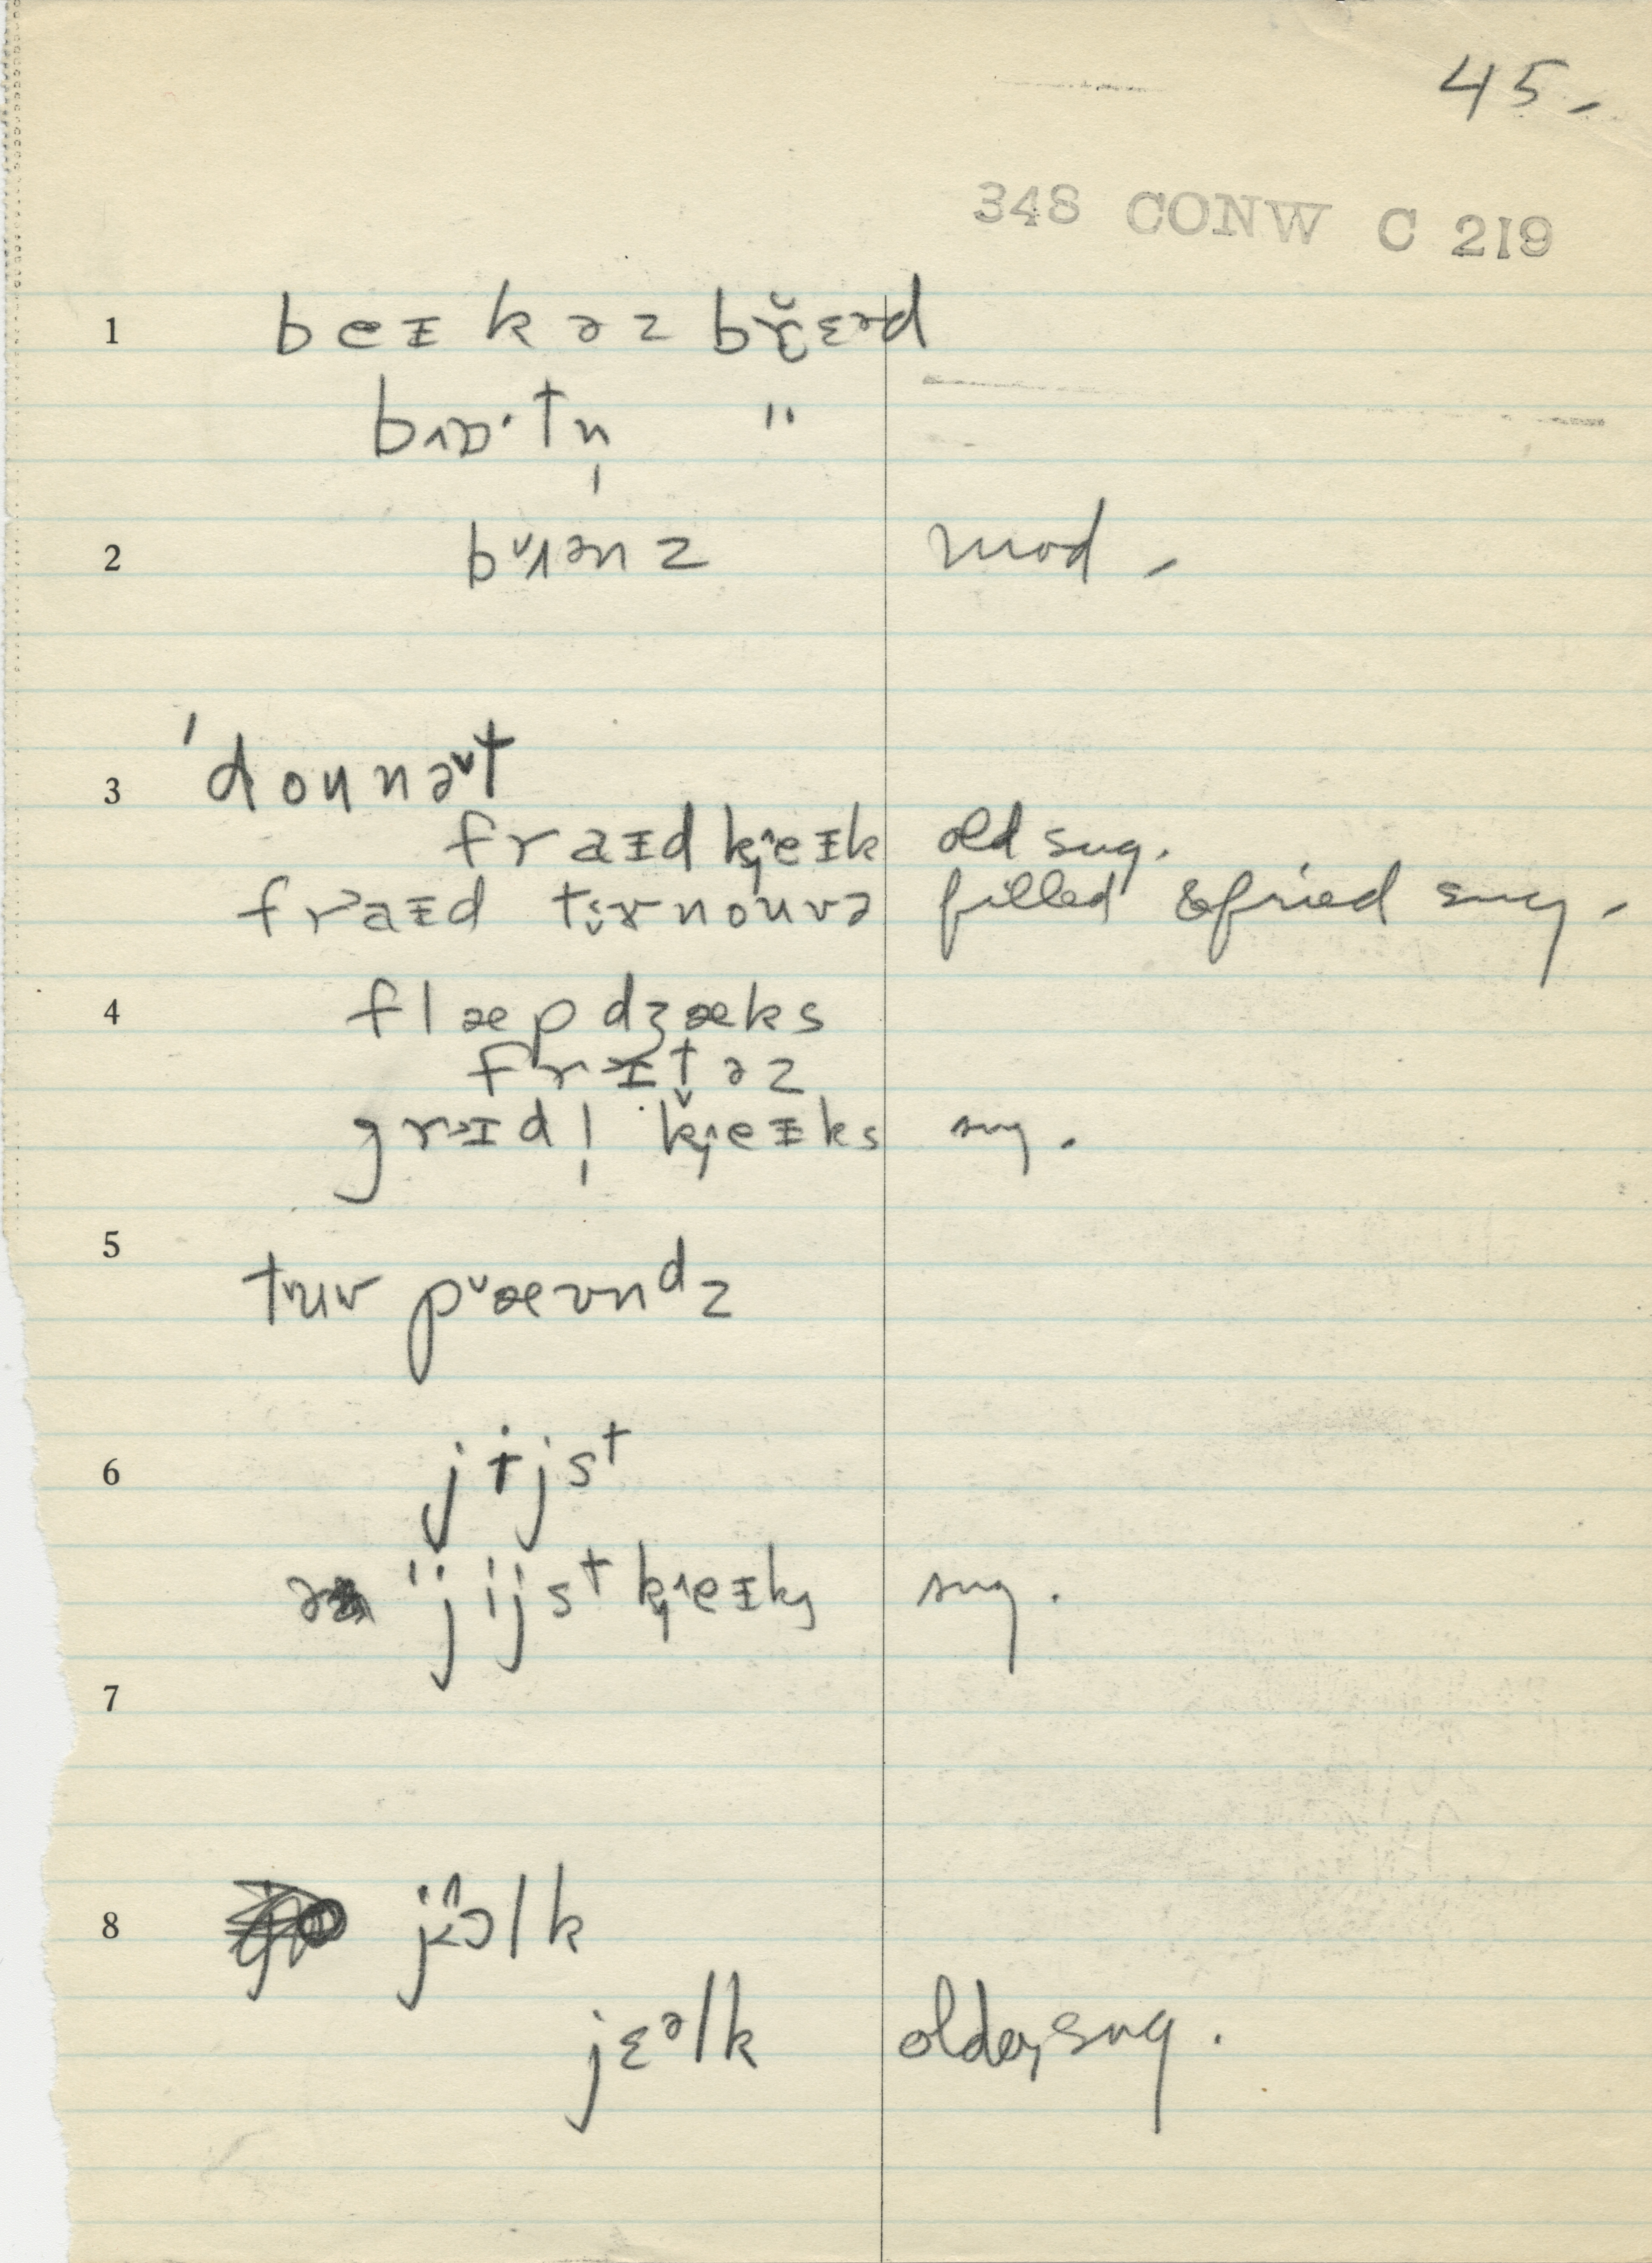 45.
348 CONW C 219
1 beɪkəz brɛəd
"
2 mod.
3 'dounət
fraɪdkeɪk old sug.
fraɪd tɜrnouvə filled & fried sug.
4 flæpdʒæks
frɪtəz
grɪdl̩ keɪks sug.
5 tuu pæʊnᵈz
6 jɨjsᵗ
ə 'jijsᵗ keɪk sug.
7
8 jɔlk
jɛᵊlk older, sug.